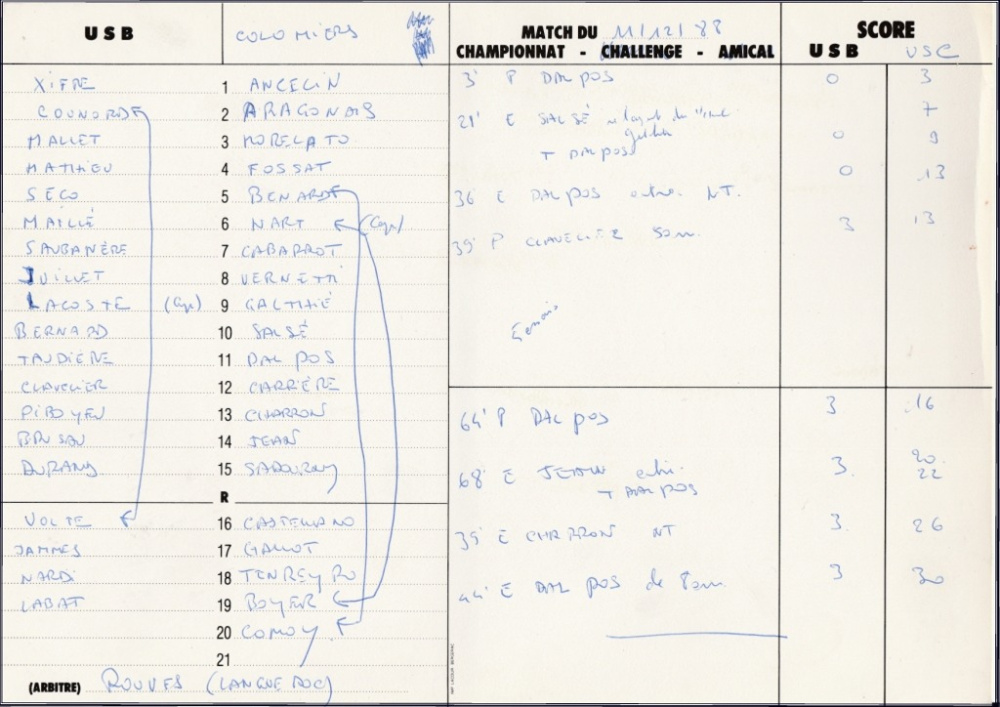 USB COLOMIERS
XIFRE 1 ANCELIN
COUNORD 2 ARAGONAIS
MALLET 3 MORELATO
MATHIEU 4 FOSSAT
SECO 5 BENARD
MAILLÉ 6 NART (Cap)
SAUBANÈRE 7 CABARROT
JUILLET 8 VERNETTI
LACOSTE (Cap) 9 GALTHIÉ
BERNARD 10 SALSÉ
TAUDIÈRE 11 DAL POS
CLAVELIER 12 CARRIÈRE
PIBOYEU 13 CHARRON
BRUSAU 14 JEAN
DURAND 15 SADOURNY
R
VOLTE 16 CASTELLANO
JAMMES 17 GALLOT
NARDI 18 TENREYRO
LABAT 19 BOYER
20 COMOY
21
(ARBITRE) ROUVES (LANGUEDOC)
MATCH DU 11/12/88 SCORE
CHAMPIONNAT - CHALLENGE - AMICAL USB USC
3' P DAL POS 0 3
21' E SALSÉ 7
T DAL POS 0 9
36' E DAL POS NT. 0 13
39' P CLAVELIER 50m. 3 13
64' P DAL POS 3 16
68' E JEAN 3 20
T DAL POS 22
35' E CHARRON NT 3 26
44' E DAL POS de 80m 3 30